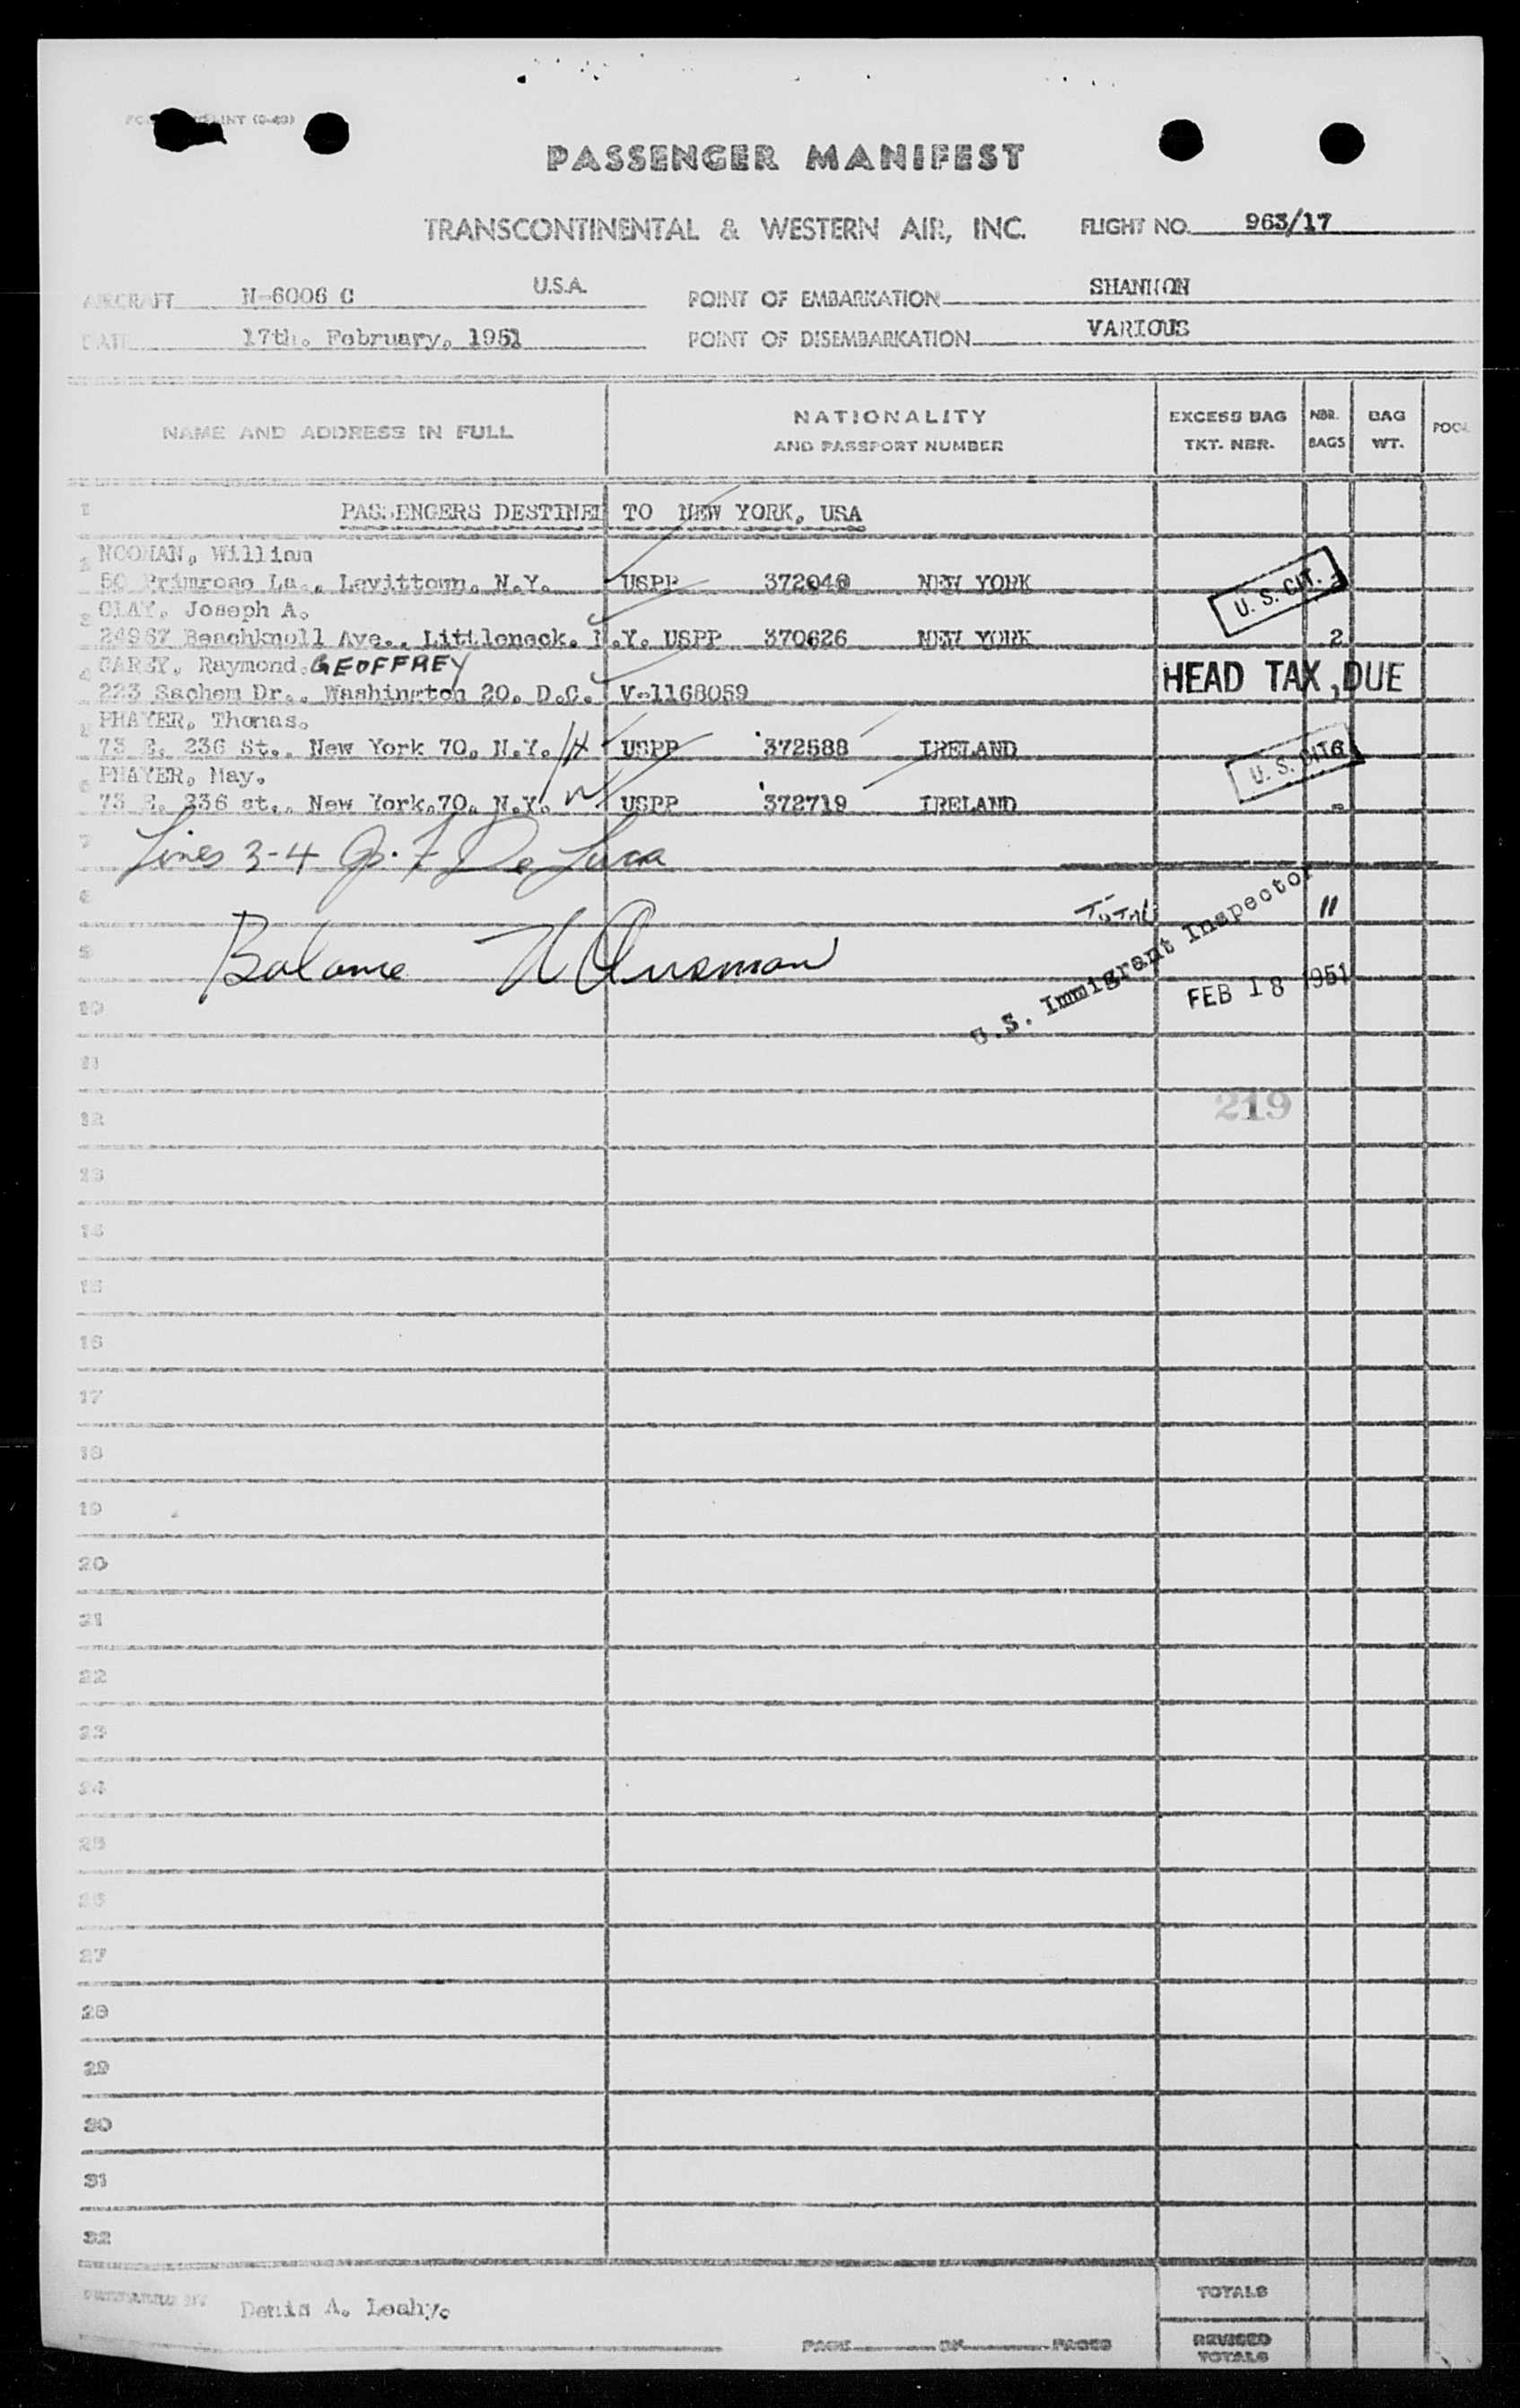 PASSENGER MANIFEST
TRANSCONTINENTAL & WESTERN AIR, INC. FLIGHT NO. 963/17
AIRCRAFT N-6006 C U.S.A. POINT OF EMBARKATION SHANNON
DATE 17th. February. 1951 POINT OF DISEMBARKATION VARIOUS
NAME AND ADDRESS IN FULL NATIONALITY AND PASSPORT NUMBER EXCESS BAG TKT. NBR. NBR. BAGS BAG WT. POO
1 PASSENGERS DESTINED TO NEW YORK, USA
2 NOONAN, William
50 Primrose La., Levittown. N.Y. USPP 372049 NEW YORK U. S. CIT.
3 CLAY, Joseph A.
24967 Beachknoll Ave., Littleneck. N.Y. USPP 370626 NEW YORK 2
4 CAREY, Raymond. GEOFFREY
223 Sachem Dr., Washington 20. D.C. V-1168059 HEAD TAX DUE
5 PHAYER, Thomas.
73 E. 236 St., New York 70. N.Y. H USPP 372588 IRELAND U. S. CIT
6 PHAYER, May.
73 E. 236 st., New York.70. N.Y. W USPP 372719 IRELAND
7 Lines 3-4 De Luca
8 Total 11
9 Balance
U.S. Immigrant Inspector
10 FEB 18 1951
11
12 219
13
14
15
16
17
18
19
20
21
22
23
24
25
26
27
28
29
30
31
32
PREPARED BY Denis A. Leahy. TOTALS
PAGE OF PAGES REVISED TOTALS